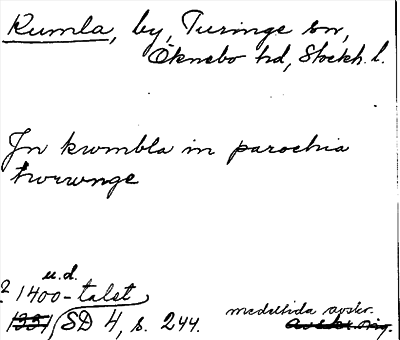 Kumla, by, Turinge sn,
Öknebo hd, Stockh. l.
Jn kwmbla in parochia
thvrwnge
u.d.
? 1400-talet
1331, SD 4, s. 244. medeltida avskr.
avskr. orig.